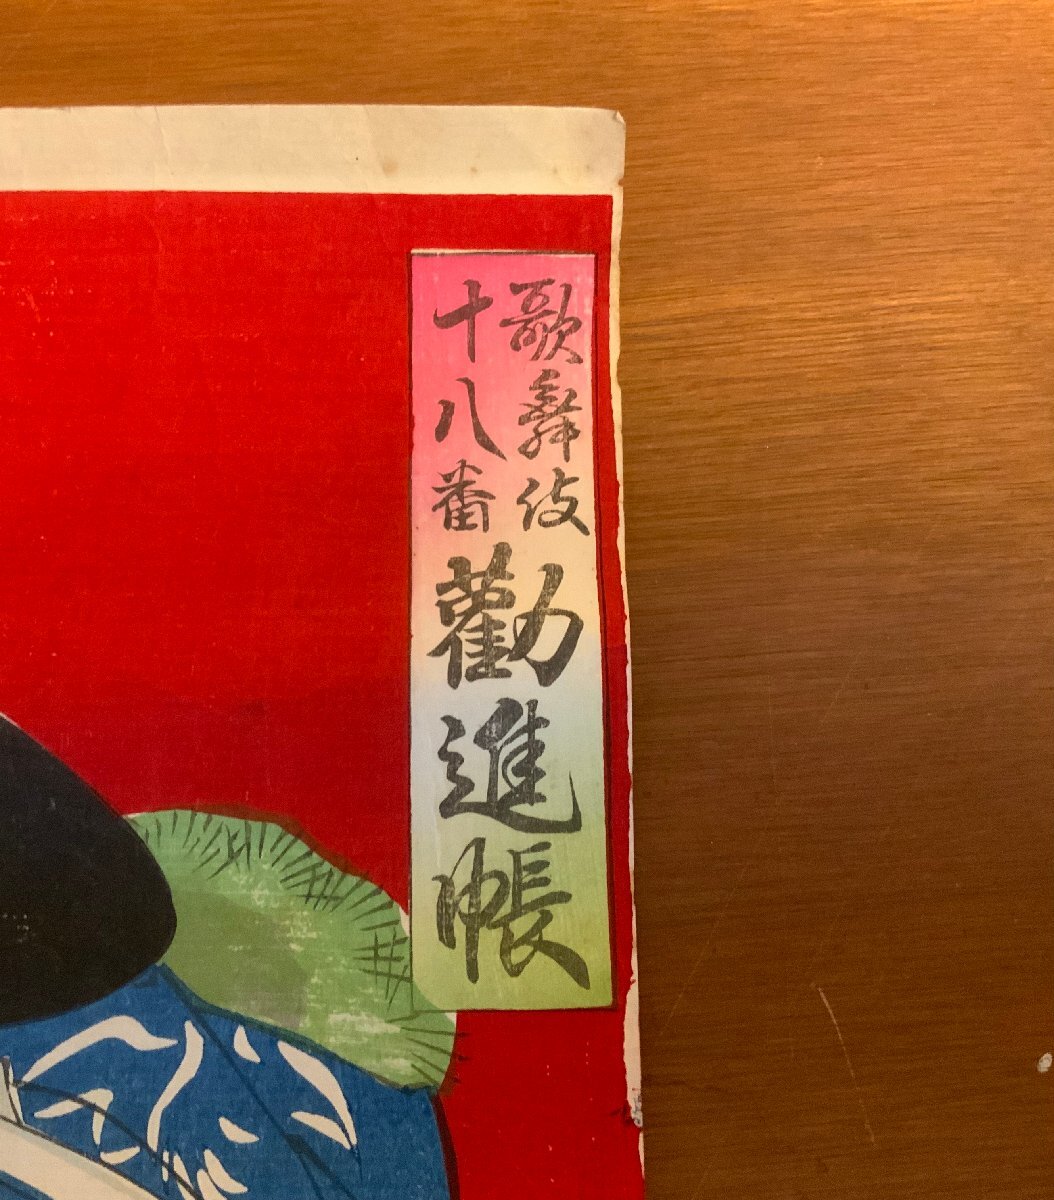 歌舞伎
十八番
勸進帳